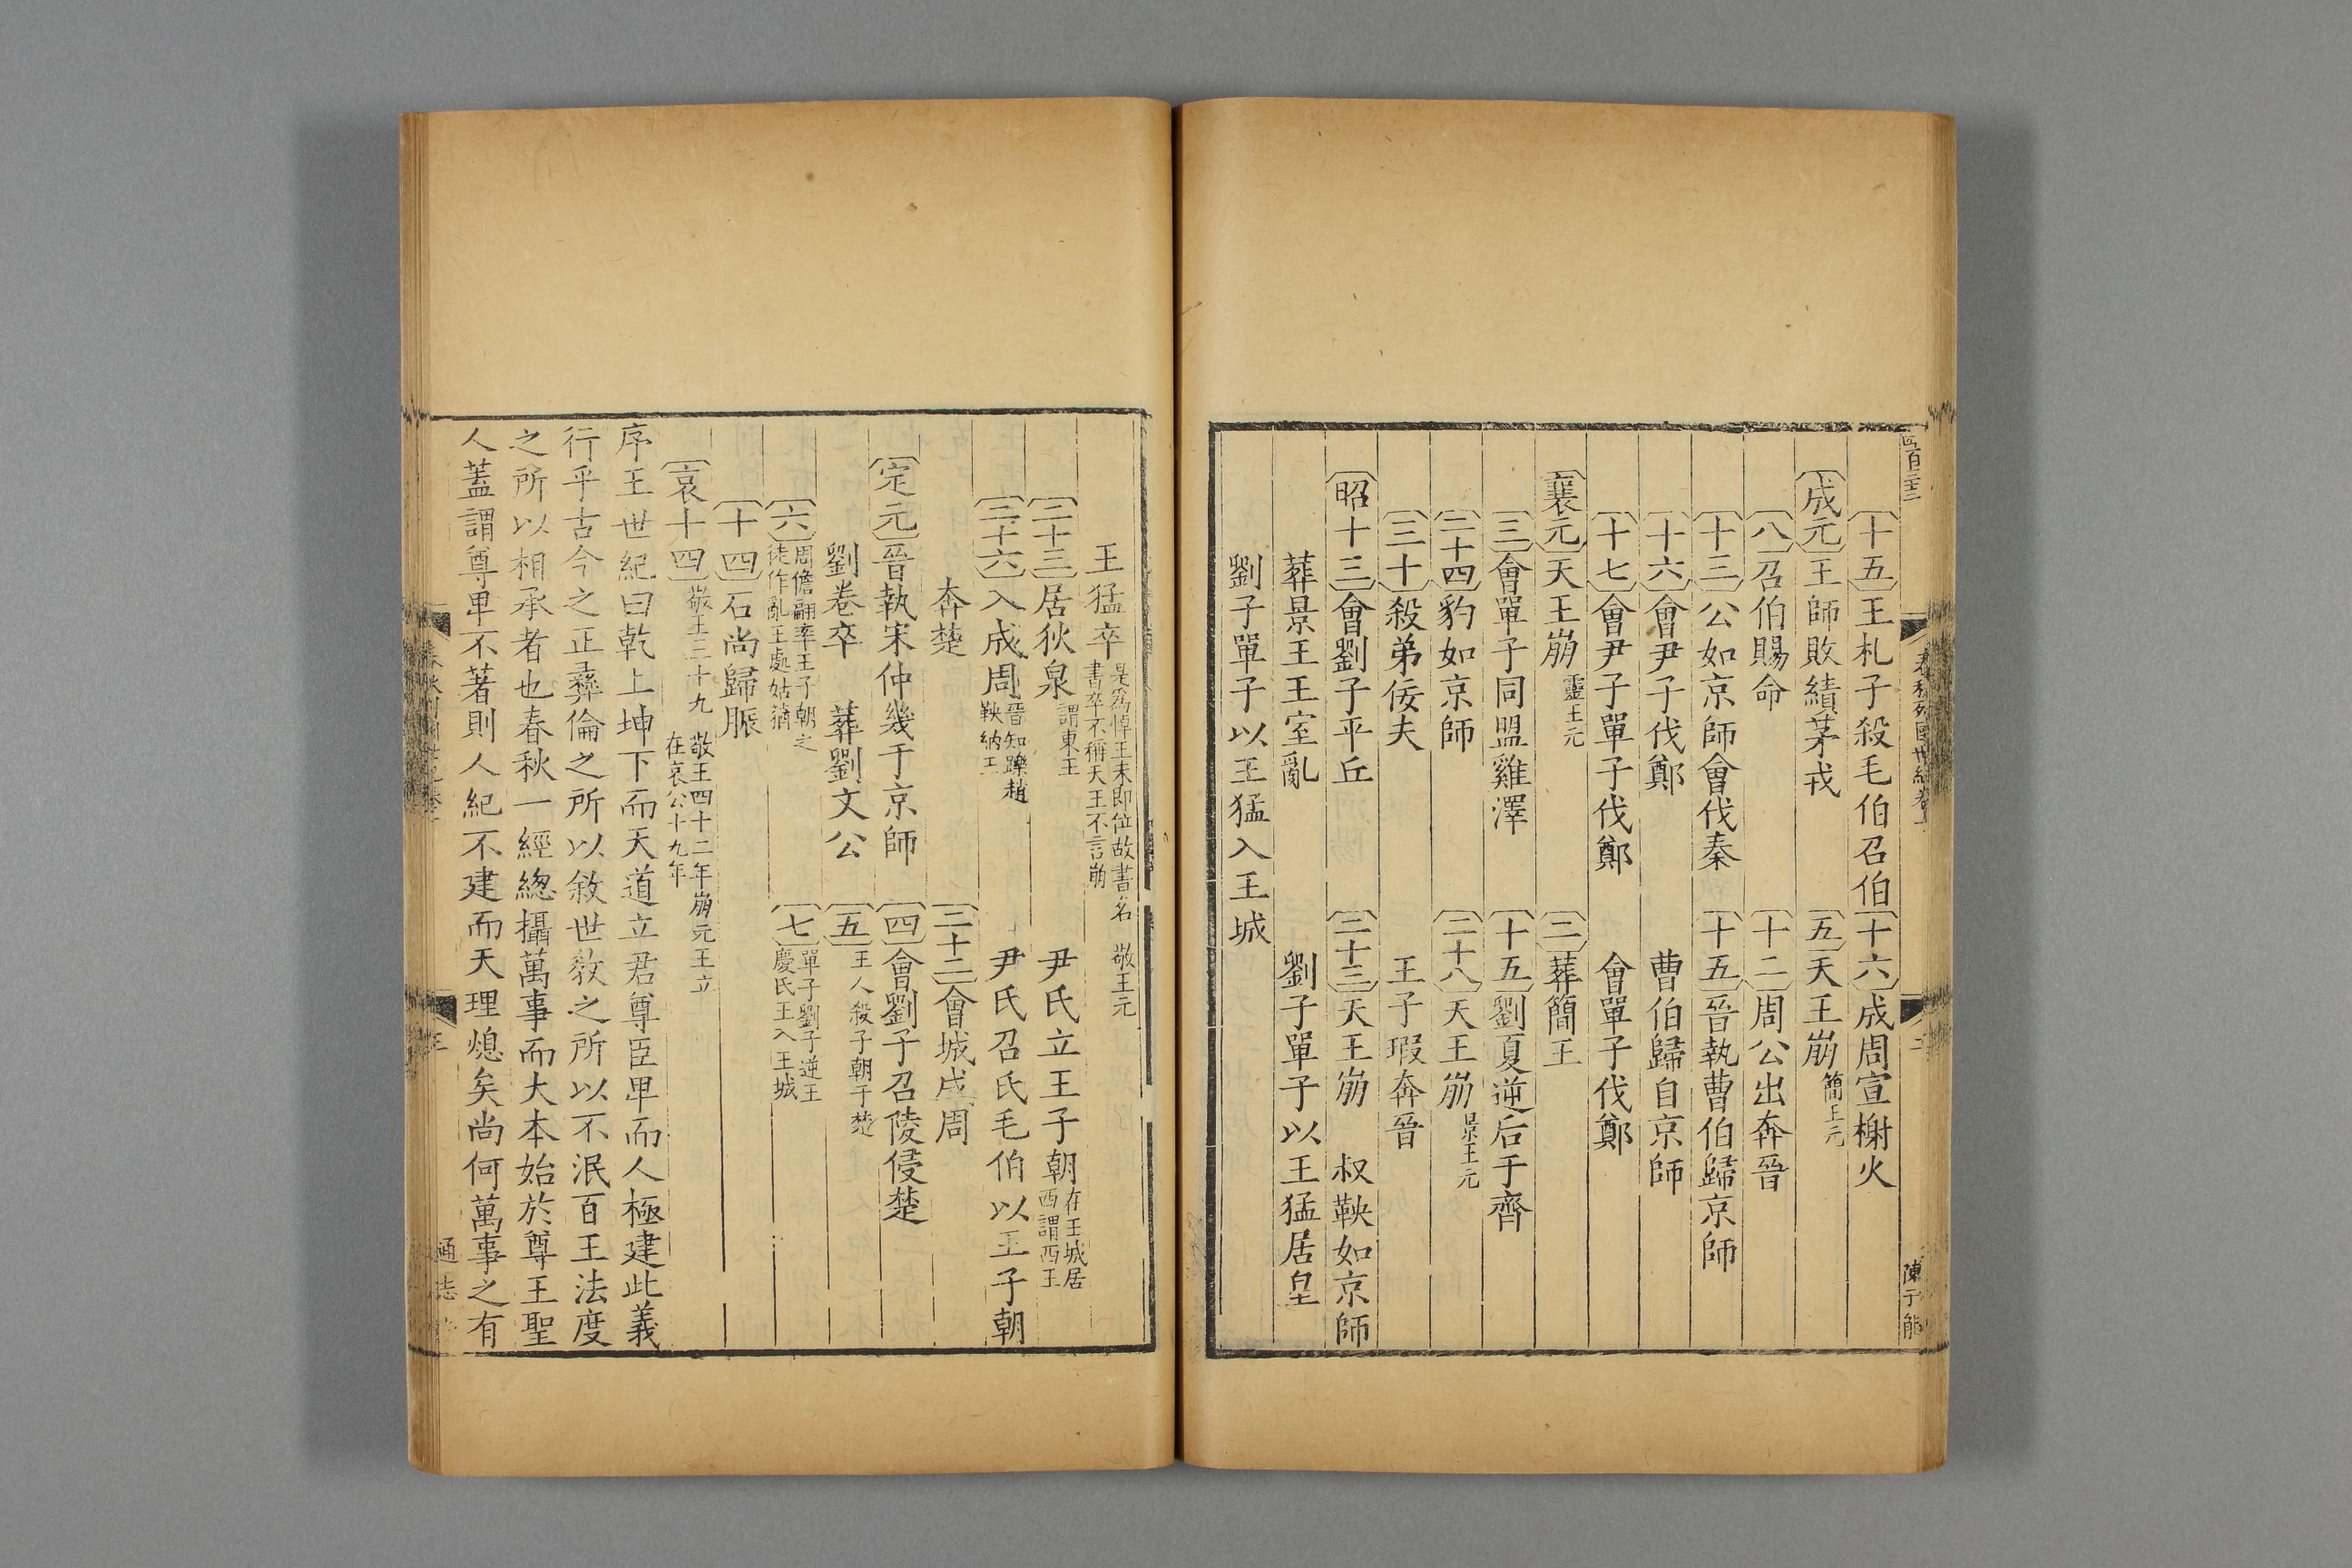 〔十五〕王札子殺毛伯召伯〔十六〕成周宣榭火
〔成元〕王師敗績茅戎〔五〕天王崩簡王元
〔八〕召伯賜命〔十二〕周公出奔晉
〔十三〕公如京師會伐秦〔十五〕晉執曹伯歸京師
〔十六〕會尹子伐鄭 曹伯歸自京師
〔十七〕會尹子單子伐鄭 會單子伐鄭
〔襄元〕天王崩靈王元〔二〕葬簡王
〔三〕會單子同盟雞澤〔十五〕劉夏逆后于齊
〔二十四〕豹如京師〔二十八〕天王崩景王元
〔三十〕殺弟佞夫 王子瑕奔晉
〔昭十三〕會劉子平丘〔二十二〕天王崩 叔鞅如京師
葬景王王室亂 劉子單子以王猛居皇
劉子單子以王猛入王城
陳子能
王猛卒是爲悼王未即位故書名 敬王元
書卒不稱天王不言崩
〔二十三〕居狄泉謂東王 尹氏立王子朝在王城居
西謂西王
〔二十六〕入成周晉知躒趙
鞅納王 尹氏召氏毛伯以王子朝
奔楚〔三十二〕會城成周
〔定元〕晉執宋仲幾于京師〔四〕會劉子召陵侵楚
劉卷卒 葬劉文公〔五〕王人殺子朝于楚
〔六〕周儋翩率王子朝之
徒作亂王處姑蕕〔七〕單子劉子逆王
慶氏王入王城
〔十四〕石尚歸脤
〔哀十四〕敬王三十九 敬王四十二年崩元王立
在哀公十九年
序王世紀曰乾上坤下而天道立君尊臣卑而人極建此義
行乎古今之正彝倫之所以敘世敎之所以不泯百王法度
之所以相承者也春秋一經總攝萬事而大本始於尊王聖
人蓋謂尊卑不著則人紀不建而天理熄矣尚何萬事之有
通志